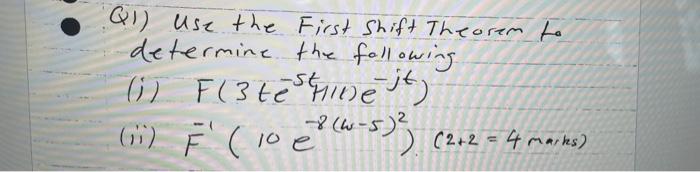 Q1) Use the First Shift Theorem to
determine the following
(i) F(3te^-5t H(t)e^-jt)
(ii) F^-1 ( 10 e^-8(w-5)^2 ) (2+2 = 4 marks)